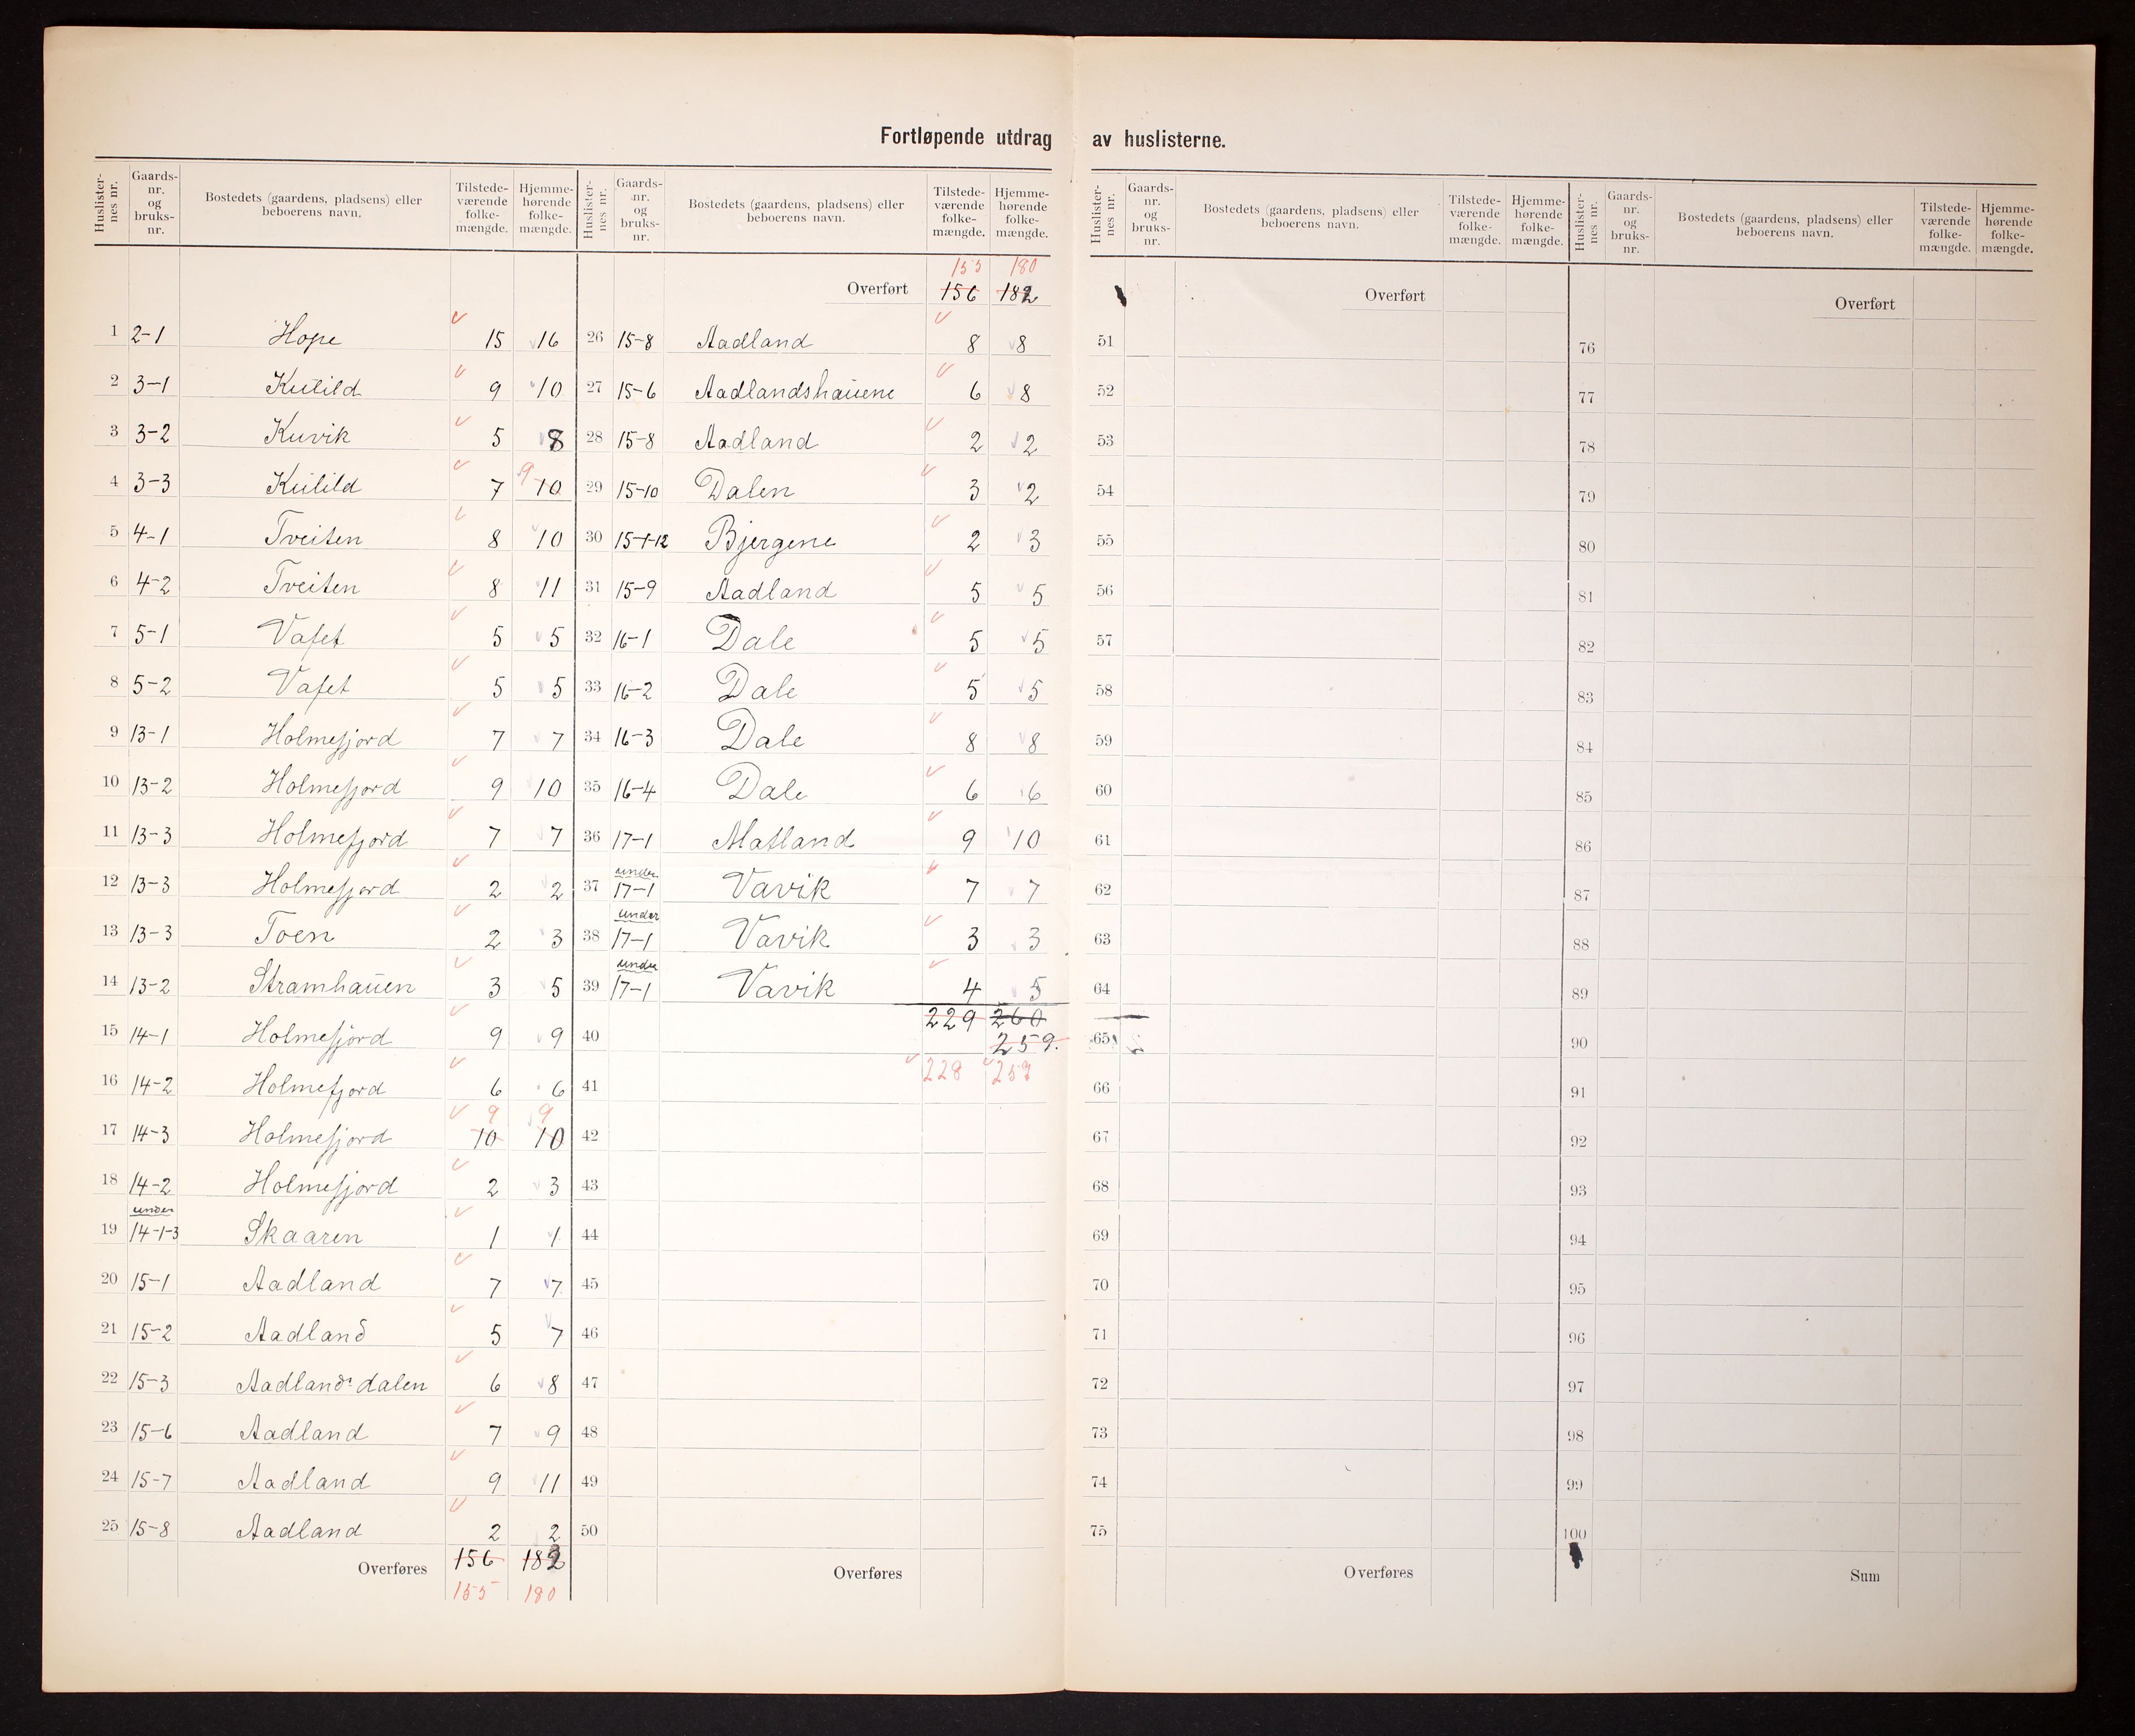 Fortløpende utdrag av huslisterne.
Huslister-nes nr. Gaards-nr. og bruks-nr. Bostedets (gaardens, pladsens) eller beboerens navn. Tilstede-værende folke-mængde. Hjemme-hørende folke-mængde.
1 2-1 Hope 15 16
2 3-1 Kulild 9 10
3 3-2 Kuvik 5 8
4 3-3 Kulild 7 10 9
5 4-1 Tveiten 8 10
6 4-2 Tveiten 8 11
7 5-1 Vafet 5 5
8 5-2 Vafet 5 5
9 13-1 Holmefjord 7 7
10 13-2 Holmefjord 9 10
11 13-3 Holmefjord 7 7
12 13-3 Holmefjord 2 2
13 13-3 Toen 2 3
14 13-2 Stramhauen 3 5
15 14-1 Holmefjord 9 9
16 14-2 Holmefjord 6 6
17 14-3 Holmefjord 10 9 10 9
18 14-2 Holmefjord 2 3
19 under 14-1-3 Skaaren 1 1
20 15-1 Aadland 7 7
21 15-2 Aadland 5 7
22 15-3 Aadlandsdalen 6 8
23 15-6 Aadland 7 9
24 15-7 Aadland 9 11
25 15-8 Aadland 2 2
Overføres 156 182
155 180
Huslister-nes nr. Gaards-nr. og bruks-nr. Bostedets (gaardens, pladsens) eller beboerens navn. Tilstede-værende folke-mængde. Hjemme-hørende folke-mængde.
155 180
Overført 156 182
26 15-8 Aadland 8 8
27 15-6 Aadlandshauene 6 8
28 15-8 Aadland 2 2
29 15-10 Dalen 3 2
30 15-1-12 Bjergene 2 3
31 15-9 Aadland 5 5
32 16-1 Dale 5 5
33 16-2 Dale 5 5
34 16-3 Dale 8 8
35 16-4 Dale 6 6
36 17-1 Matland 9 10
37 under 17-1 Vavik 7 7
38 under 17-1 Vavik 3 3
39 under 17-1 Vavik 4 5
229 260
40 259.
41 228 257
42
43
44
45
46
47
48
49
50
Overføres
Huslister-nes nr. Gaards-nr. og bruks-nr. Bostedets (gaardens, pladsens) eller beboerens navn. Tilstede-værende folke-mængde. Hjemme-hørende folke-mængde.
Overført
51
52
53
54
55
56
57
58
59
60
61
62
63
64
65
66
67
68
69
70
71
72
73
74
75
Overføres
Huslister-nes nr. Gaards-nr. og bruks-nr. Bostedets (gaardens, pladsens) eller beboerens navn. Tilstede-værende folke-mængde. Hjemme-hørende folke-mængde.
Overført
76
77
78
79
80
81
82
83
84
85
86
87
88
89
90
91
92
93
94
95
96
97
98
99
100
Sum